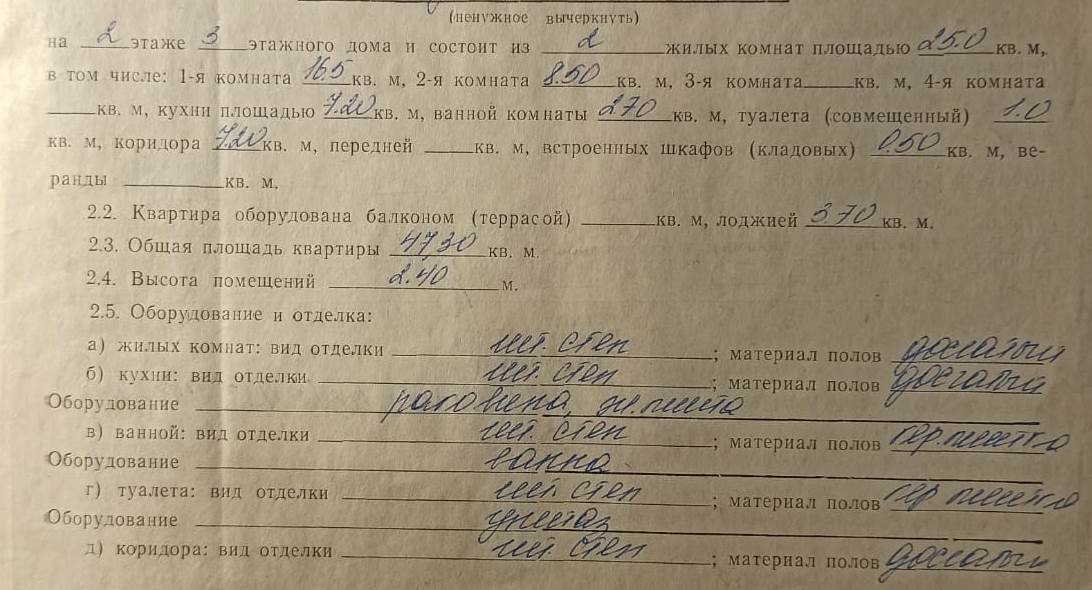 (ненужное вычеркнуть)
на 2 этаже 3 этажного дома и состоит из 2 жилых комнат площадью 25.0 кв. м,
в том числе: 1-я комната 16.5 кв. м, 2-я комната 8.50 кв. м, 3-я комната____кв. м, 4-я комната
____кв. м, кухни площадью 7.20 кв. м, ванной комнаты 2.70 кв. м, туалета (совмещенный) 1.0
кв. м, коридора 7.20 кв. м, передней ____кв. м, встроенных шкафов (кладовых) 0.50 кв. м, ве-
ранды ________кв. м.
2.2. Квартира оборудована балконом (террасой) ______кв. м, лоджией 3.70 кв. м.
2.3. Общая площадь квартиры 47,30 кв. м.
2.4. Высота помещений 2.40 м.
2.5. Оборудование и отделка:
а) жилых комнат: вид отделки шт. стен ; материал полов дощатый
б) кухни: вид отделки шт. стен ; материал полов дощатый
Оборудование раковина, эл.плита
в) ванной: вид отделки шт. стен ; материал полов кер.плитка
Оборудование ванна
г) туалета: вид отделки шт. стен ; материал полов кер плитка
Оборудование унитаз
д) коридора: вид отделки шт. стен ; материал полов дощатый